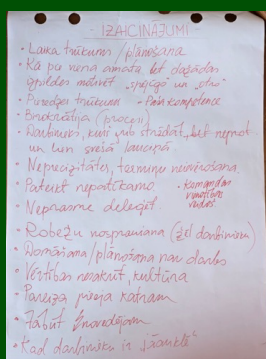 - IZAICINĀJUMI -
• Laika trūkums / plānošana
• Kā pie viena amata, bet dažādas
izpildes motivēt "spējīgo" un "otro"
• Pieredzes trūkums - Pašu kompetence
• Birokrātija (procesi)
• Darbinieks, kurš strādāt, bet nemot
un lien svešā lauciņā.
• Neprecizitātes, termiņu neievērošana.
• Pateikt nepatīkamo.
• Komandas
vadītāja
• Neprasme deleģēt
• Robežu nospraušana (žēl darbinieku)
• Domāšana / plānošana nav darbs
• Vērtības nesakrīt, kultūra
• Pareiza pieeja katram
• Kļūt novedējam
• Kad darbinieks ir jāatlaiž